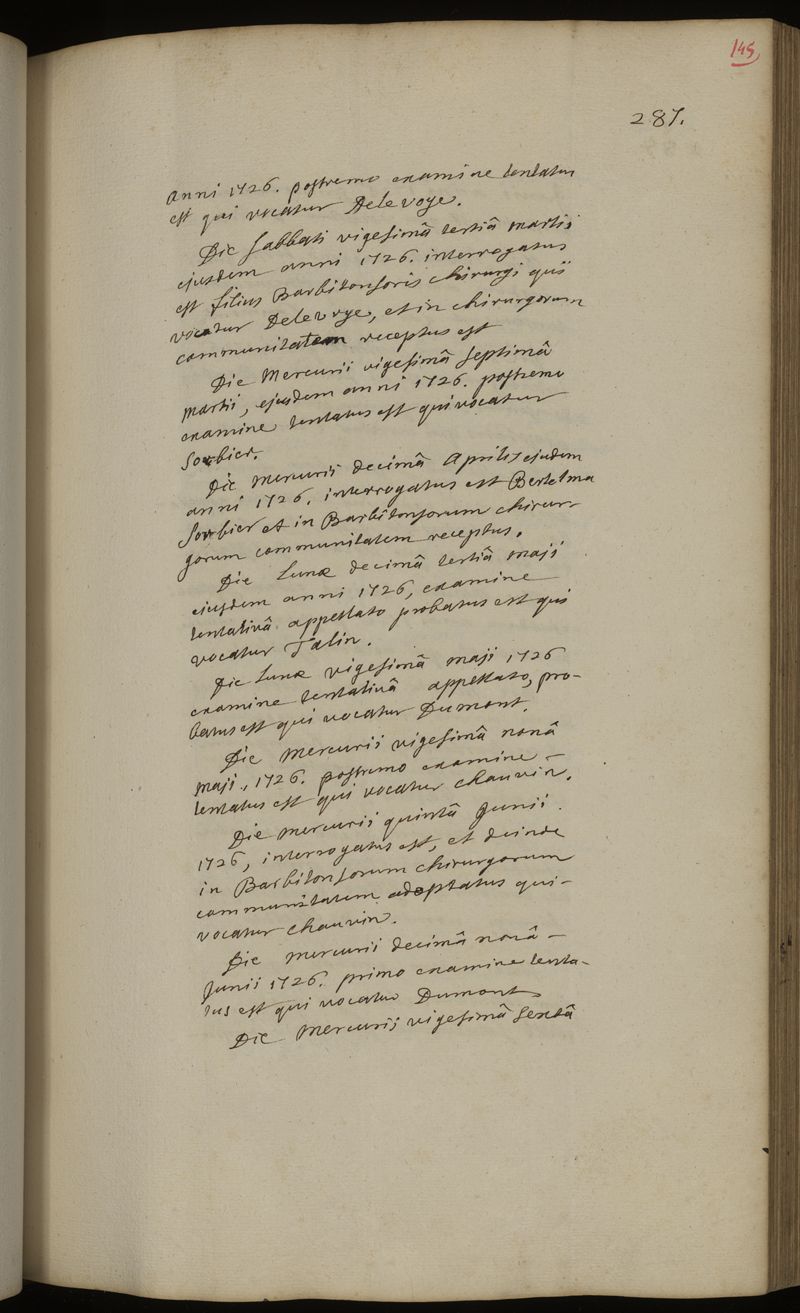 145
287.
Anni 1726. postremo examine tentatus
est qui vocatur Delevoye.
Die Sabbati vigesimâ tertiâ martii
ejusdem anni 1726. interrogatus
est filius Barbitonsoris chirurgi qui
vocatur Delevoye, et in chirurgorum
communitatem receptus est
Die Mercurii vigesimâ septimâ
martii, ejusdem anni 1726. postremo
examine tentatus est qui vocatur
Sorbier.
Die mercurii decimâ Aprilis ejusdem
anni 1726. interrogatus est Bertelma
Sorbier et in Barbitonsorum chirur-
gorum communitatem receptus.
Die Lunæ decimâ tertiâ maji
ejusdem anni 1726, examine
tentativâ appellato probatus est qui
vocatur Talin.
Die Lunæ vigesimâ maji 1726
examine tentativâ appellato, pro-
batus est qui vocatur Dumont.
Die mercurii vigesimâ nonâ
maji, 1726. postremo examine
tentatus est qui vocatur chauvin.
Die mercurii quintâ Junii
1726, interrogatus est, et deinde
in Barbitonsorum chirurgorum
communitatem adoptatus qui
vocatur chauvin.
Die mercurii decimâ nonâ
Junii 1726. primo examine tenta-
tus est qui vocatur Dumont
Die Mercurii vigesimâ sextâ